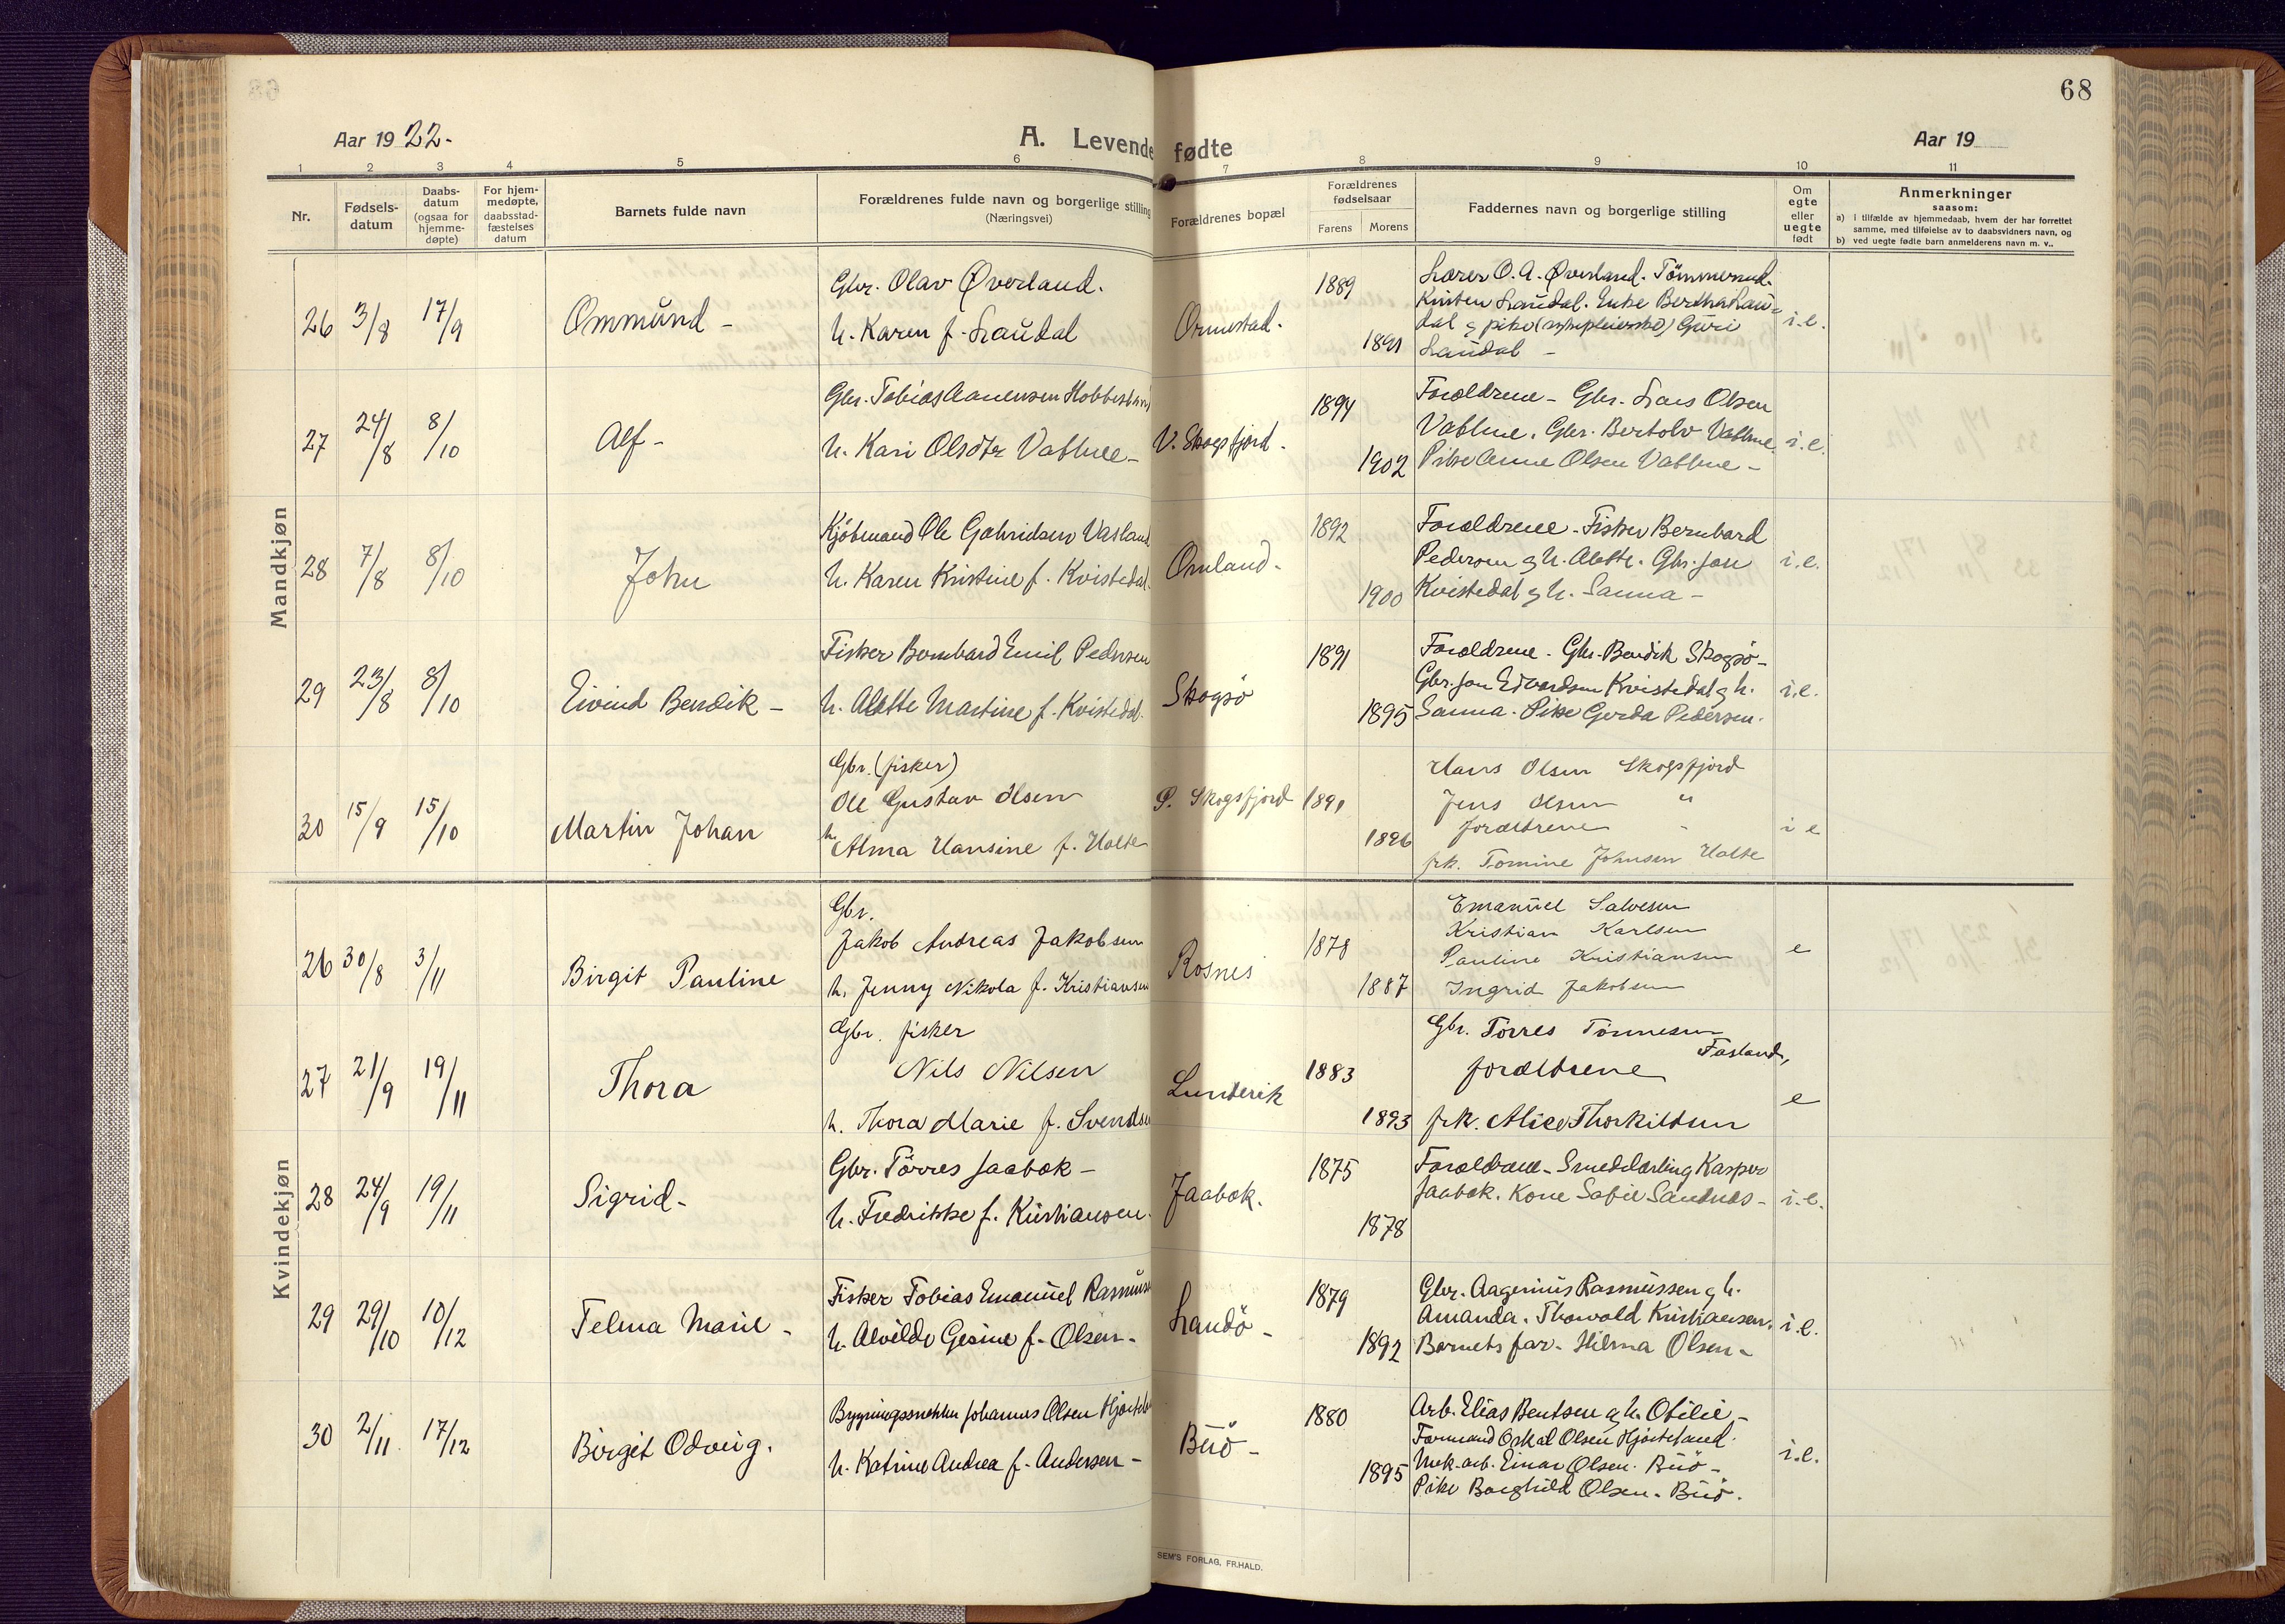 68
Aar 1922.
A. Levende fødte
Aar 19
1 2 3 4 5 6 7 8 9 10 11
Nr.
Fødsels-
datum
Daabs-
datum
(ogsaa for
hjemme-
døpte)
For hjem-
medøpte,
daabsstad-
fæstelses
datum
Barnets fulde navn
Forældrenes fulde navn og borgerlige stilling
(Næringsvei)
Forældrenes bopæl
Forældrenes
fødselsaar
Farens Morens
Faddernes navn og borgerlige stilling
Om
egte
eller
uegte
født
Anmerkninger
saasom:
a) i tilfælde av hjemmedaab, hvem der har forrettet
samme, med tilføielse av to daabsvidners navn, og
b) ved uegte fødte barn anmelderens navn m. v..
Mandkjøn
26 3/8 17/9 Ommund -
Gbr. Olav Øverland.
h. Karen f. Laudal
Ormestad.
1889
1891
Lærer O. A. Øverland. Tömmermd.
Kristen Laudal. Enke Bertha Lau-
dal og pike (sykepleierske) Guri
Laudal -
i.e.
27 24/8 8/10 Alf -
Gbr. Tobias Aanensen
h. Kari Olsdtr Vatne -
V. Skogsfjord.
1894
1902
Forældrene - Gbr. Lars Olsen
Vatne. Gbr. Bertolv Vatne.
Pike Anne Olsen Vatne -
i.e.
28 7/8 8/10 John
Kjøbmand Ole Gabrielsen Vasland
h. Karen Kristine f. Kvistedal.
Omland.
1892
1900
Forældrene - Fisker Bernhard
Pedersen og h. Alette. Gbr. Jon
Kvistedal og h. Sanna -
i.e.
29 23/8 8/10 Eivind Bendik -
Fisker Bernhard Emil Pedersen
h. Alette Martine f. Kvistedal.
Skogsö
1891
1895
Forældrene. Gbr. Bendik Skogsö -
Gbr. Jon Edvardsen Kvistedal og h.
Sanna. Pike Gerda Pedersen.
i.e.
30 15/9 15/10 Martin Johan
Gbr. (fisker)
Ole Gustav Olsen
h. Alma Hansine f. Holte
Skogsfjord
1891
1896
Hans Olsen Skogsfjord
Jens Olsen "
forældrene "
frk. Tomine Johnsen Holte
i e
Kvindekjøn
26 30/8 3/11 Birgit Pauline
Gbr.
Jakob Andreas Jakobsen
h. Jenny Nikola f. Kristiansen
Rosnes
1878
1887
Emanuel Salvesen
Kristian Karlsen
Pauline Kristiansen
Ingrid Jakobsen
e
27 21/9 19/11 Thora
Gbr. fisker
Nils Nilsen
h. Thora Marie f. Svendsen
Lundevik
1883
1893
Gbr. Tørres Tønnesen
Fasland,
forældrene
frk. Alice Thorkildsen
e
28 24/9 19/11 Sigrid -
Gbr. Törres Jaabæk -
h. Fredrikke f. Kristiansen.
Jaabæk.
1875
1878
Forældrene - Smedelærling Kasper
Jaabæk. Kone Sofie Sandnes -
i.e.
29 29/10 10/12 Telma Marie -
Fisker Tobias Emanuel Rasmuss
h. Alvilde Gesine f. Olsen -
Landö -
1879
1892
Gbr. Aagenius Rasmussen og h.
Amanda. Thorvald Kristiansen.
Barnets far. Hilma Olsen -
i.e.
30 2/11 17/12 Birgit Odveig.
Bygningssnekker Johannes Olsen
h. Katrine Andrea f. Andersen -
Buö -
1880
1895
Arb. Elias Bentsen og h. Otilie -
Formand Oskal Olsen Hjorteland.
Mek. arb. Einar Olsen. Buö -
Pike Borghild Olsen. Buö.
i.e.
SEM'S FORLAG, FR.HALD.